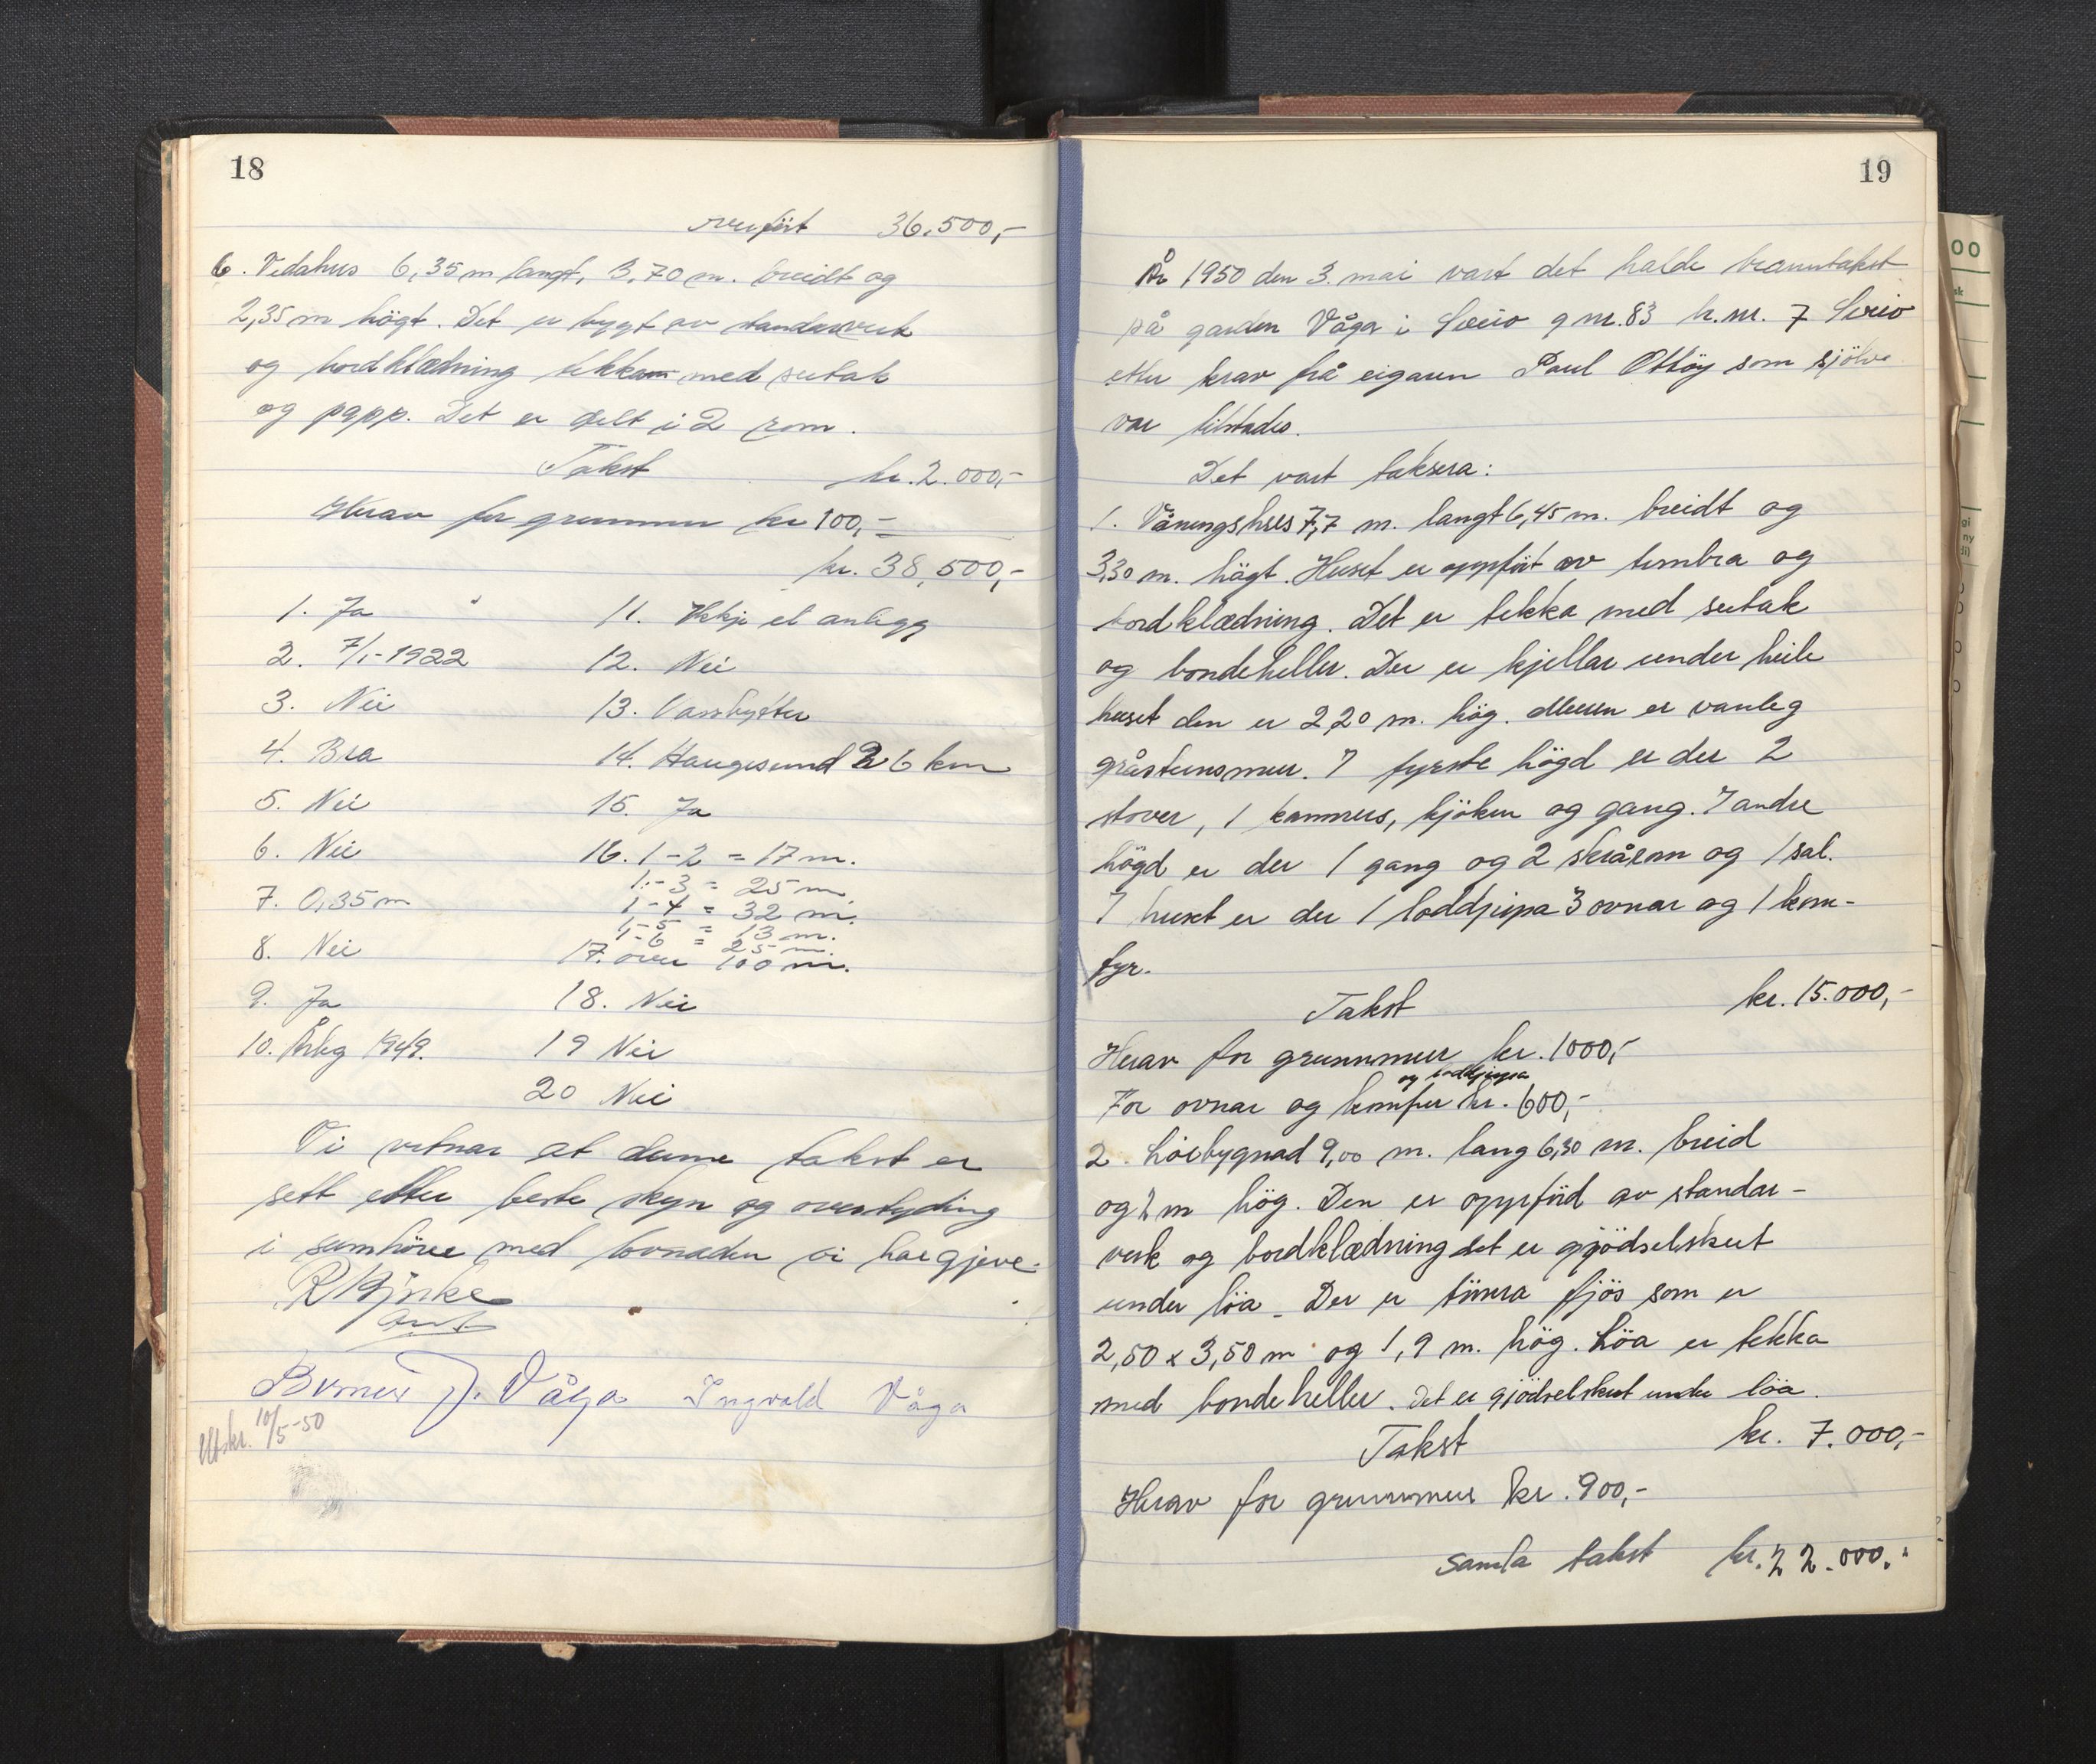 18
overført 36.500,-
6. Vedahus 6,35 m langt, 3,70 m. breidt og
2,35 m högt. Det er bygt av standarverk
og bordklædning tekka med sutak
og papp. Det er delt i 2 rom.
Takst kr. 2.000,-
Herav for grunnmur kr 100,-
kr. 38,500,-
1. Ja
2. 7/1-1922
3. Nei
4. Bra
5. Nei
6. Nei
7. 0,35 m
8. Nei
9. Ja
10. Årleg 1949.
11. Ikkje el anlegg
12. Nei
13. Vassbytter
14. Haugesund 26 km
15. Ja
16. 1-2 = 17 m.
1-3 = 25 m.
1-4 = 32 m.
1-5 = 13 m.
1-6 = 25 m.
17. over 100 m.
18. Nei
19 Nei
20 Nei
Vi vitnar at denne takst er
sett etter beste skyn og overtyding
i samhöve med lovnaden vi har gjeve.
J. Våga Ingvald Våga
Utskr. 10/5-50
19
År 1950 den 3. mai vart det halde branntakst
på garden Våga i Sveio g nr. 83 b.nr. 7 Sveio
etter krav frå eigaren Poul Ottöy som sjölv
var tilstades.
Det vart taksera:
1. Våningshus 7,7 m. langt 6,45 m. breidt og
3,30 m. högt. Huset er oppfört av tembra og
bordklædning. Det er tekka med sutak
og bondeheller. Der er kjellar under heile
huset den er 2,20 m. hög. Muren er vanleg
gråsteinsmur. I fyrste högd er der 2
stover, 1 kammers, kjöken og gang. I andre
högd er der 1 gang og 2 skrårom og 1 sal.
I huset er der 1 loddpipa 3 ovnar og 1 kom-
fyr.
Takst kr. 15.000,-
Herav for grunnmur kr. 1000,-
og loddpipa
For ovnar og komfur kr. 600,-
2. Löebygnad 9,00 m. lang 6,30 m. breid
og 2 m hög. Den er oppförd av standar-
verk og bordklædning det er gjödselskut
under löa. Der er tömra fjös som er
2,50 x 3,50 m og 1,9 m. hög. Löa er tekka
med bondeheller. Det er gjödselskut under löa.
Takst kr. 7.000,-
Herav for grunnmur kr. 900,-
Samla takst kr. 22.000.-